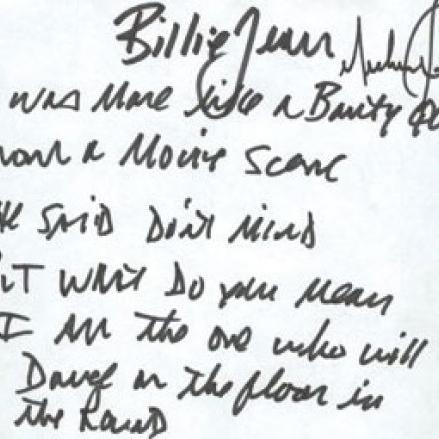 Billie Jean
was More like a Bauty Qu
a Movie Scene
SAID Don't MIND
WHAT Do you Mean
I Am the one who will
Dance on the floor in
the Round